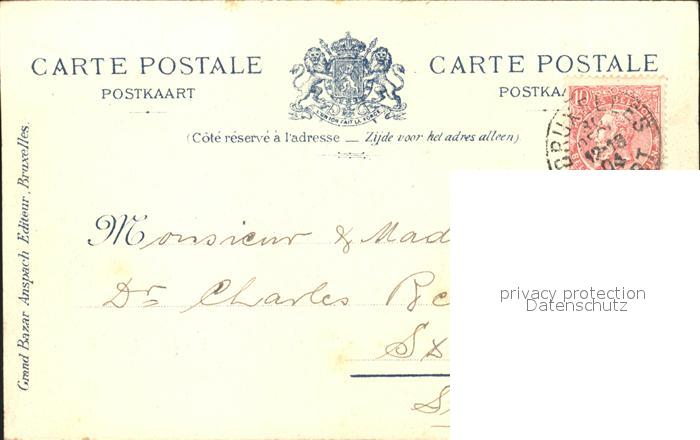 CARTE POSTALE
POSTKAART
L'UNION FAIT LA FORCE
CARTE POSTALE
(Côté réservé à l'adresse — Zijde voor het adres alleen)
10
BRUXELLES
12-13
04
Grand Bazar Anspach Editeur, Bruxelles.
Monsieur & Mad
Dr Charles
privacy protection
Datenschutz